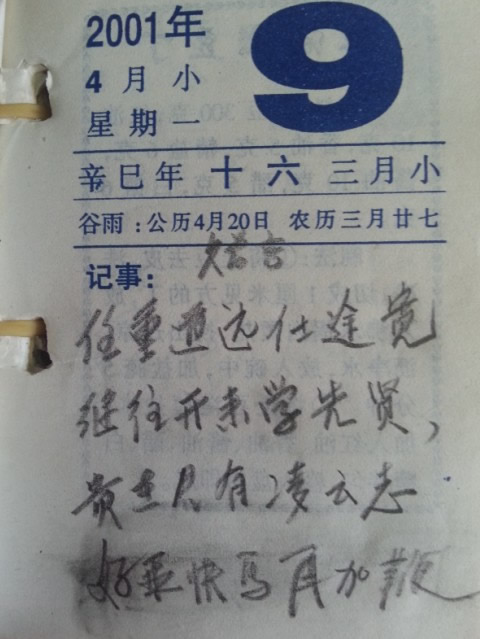 2001年
9
4月小
星期一
辛巳年 十六 三月小
谷雨：公历4月20日 农历三月廿七
记事：
任重道远仕途宽
继往开来学先贤，
贵在只有凌云志
好乘快马再加鞭